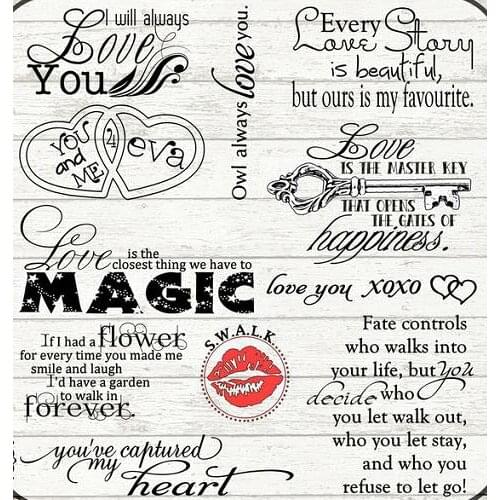 I will always
Love
You
Owl always love you.
Every
Love Story
is beautiful,
but ours is my favourite.
You
and
ME
4
eva
Love
IS THE MASTER KEY
THAT OPENS
THE GATES OF
happiness.
Love is the
closest thing we have to
MAGIC
love you xoxo
If I had a flower
for every time you made me
smile and laugh
I'd have a garden
to walk in
forever.
S.W.A.L.K
Fate controls
who walks into
your life, but you
decide who
you let walk out,
who you let stay,
and who you
refuse to let go!
you've captured
my
heart